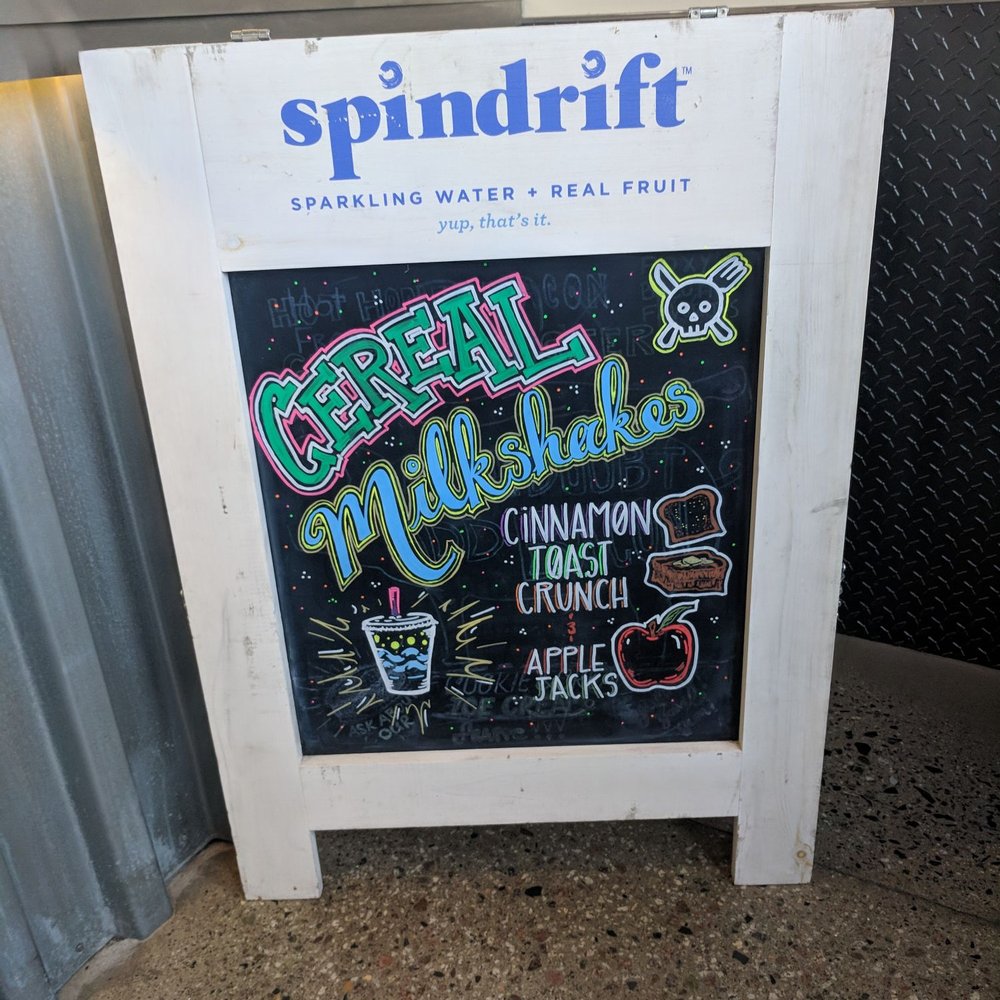 spindrift™
SPARKLING WATER + REAL FRUIT
yup, that's it.
CEREAL
Milkshakes
CINNAMON
TOAST
CRUNCH
&
APPLE
JACKS